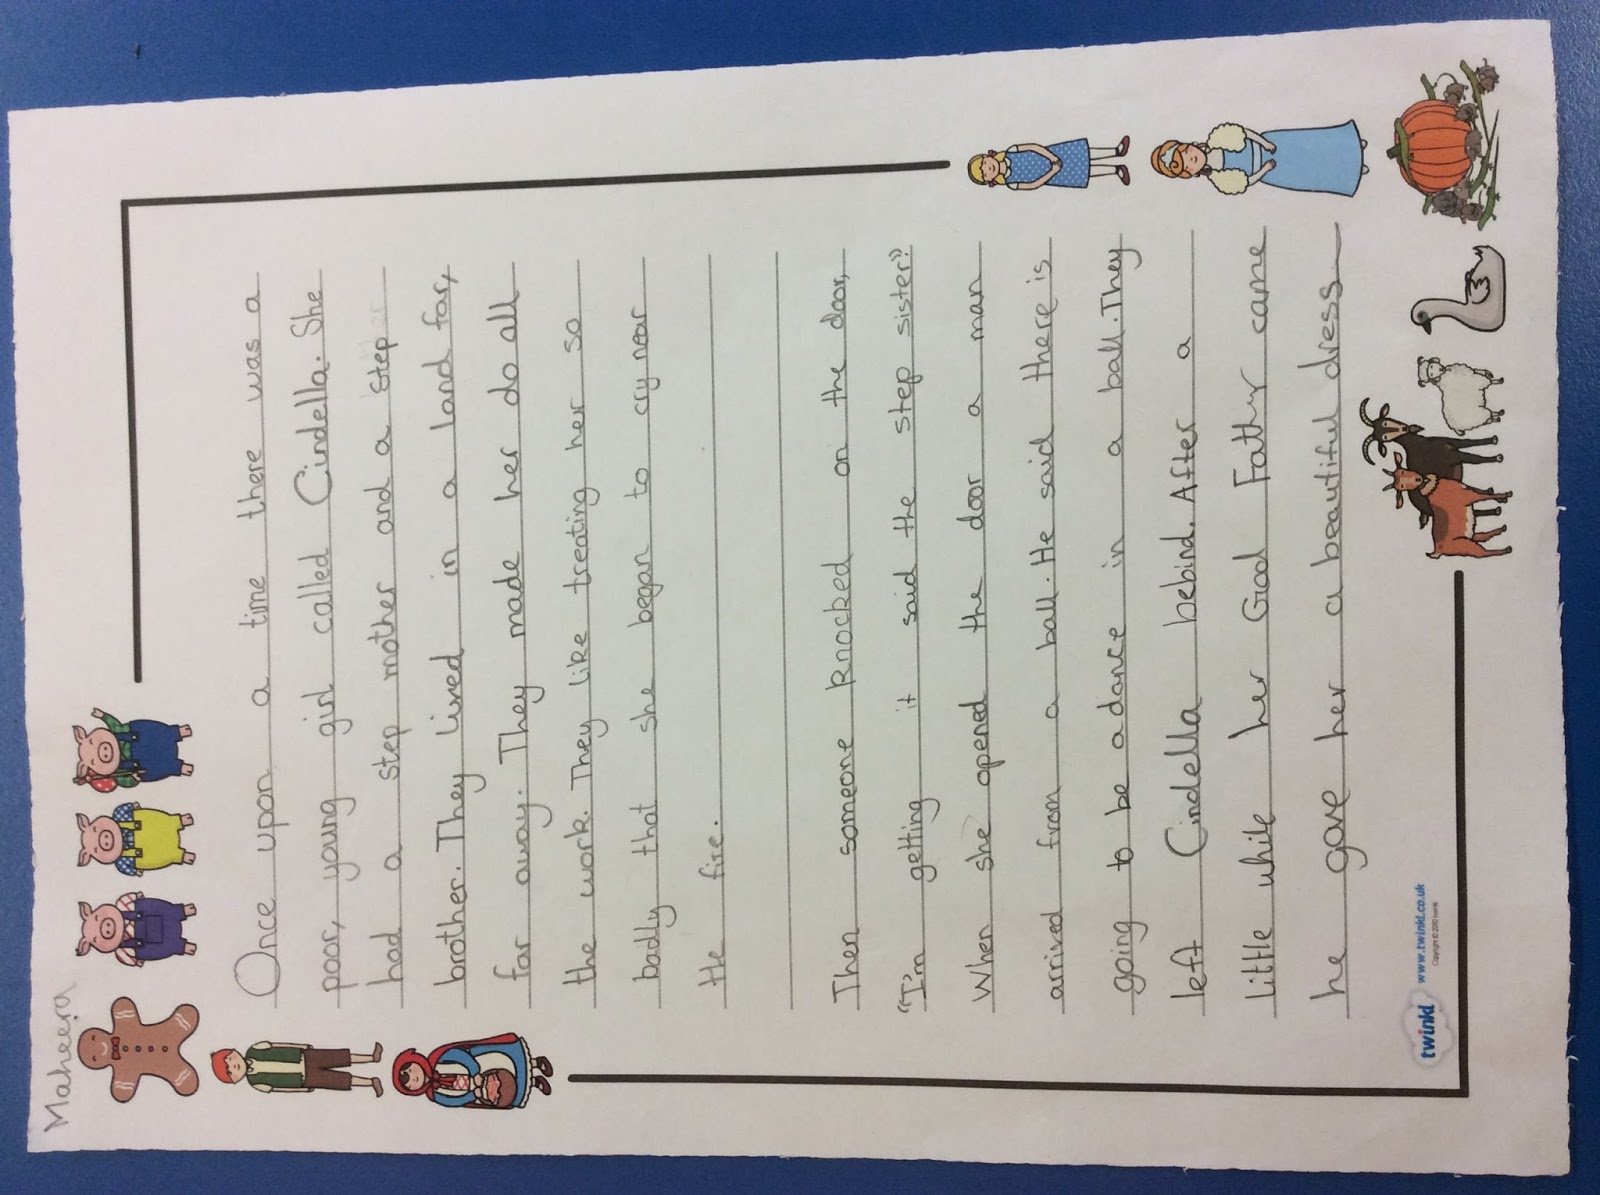 Maheera
Once upon a time there was a
poor, young girl called Cindella. She
had a step mother and a step
brother. They lived in a land far,
far away. They made her do all
the work. They like treating her so
badly that she began to cry near
the fire.
Then someone knocked on the door,
"I'm getting it said the step sister."
When she opened the door a man
arrived from a ball. He said there is
going to be a dance in a ball. They
left Cindella behind. After a
little while her God Fathy came
he gave her a beautiful dress
twinkl www.twinkl.co.uk